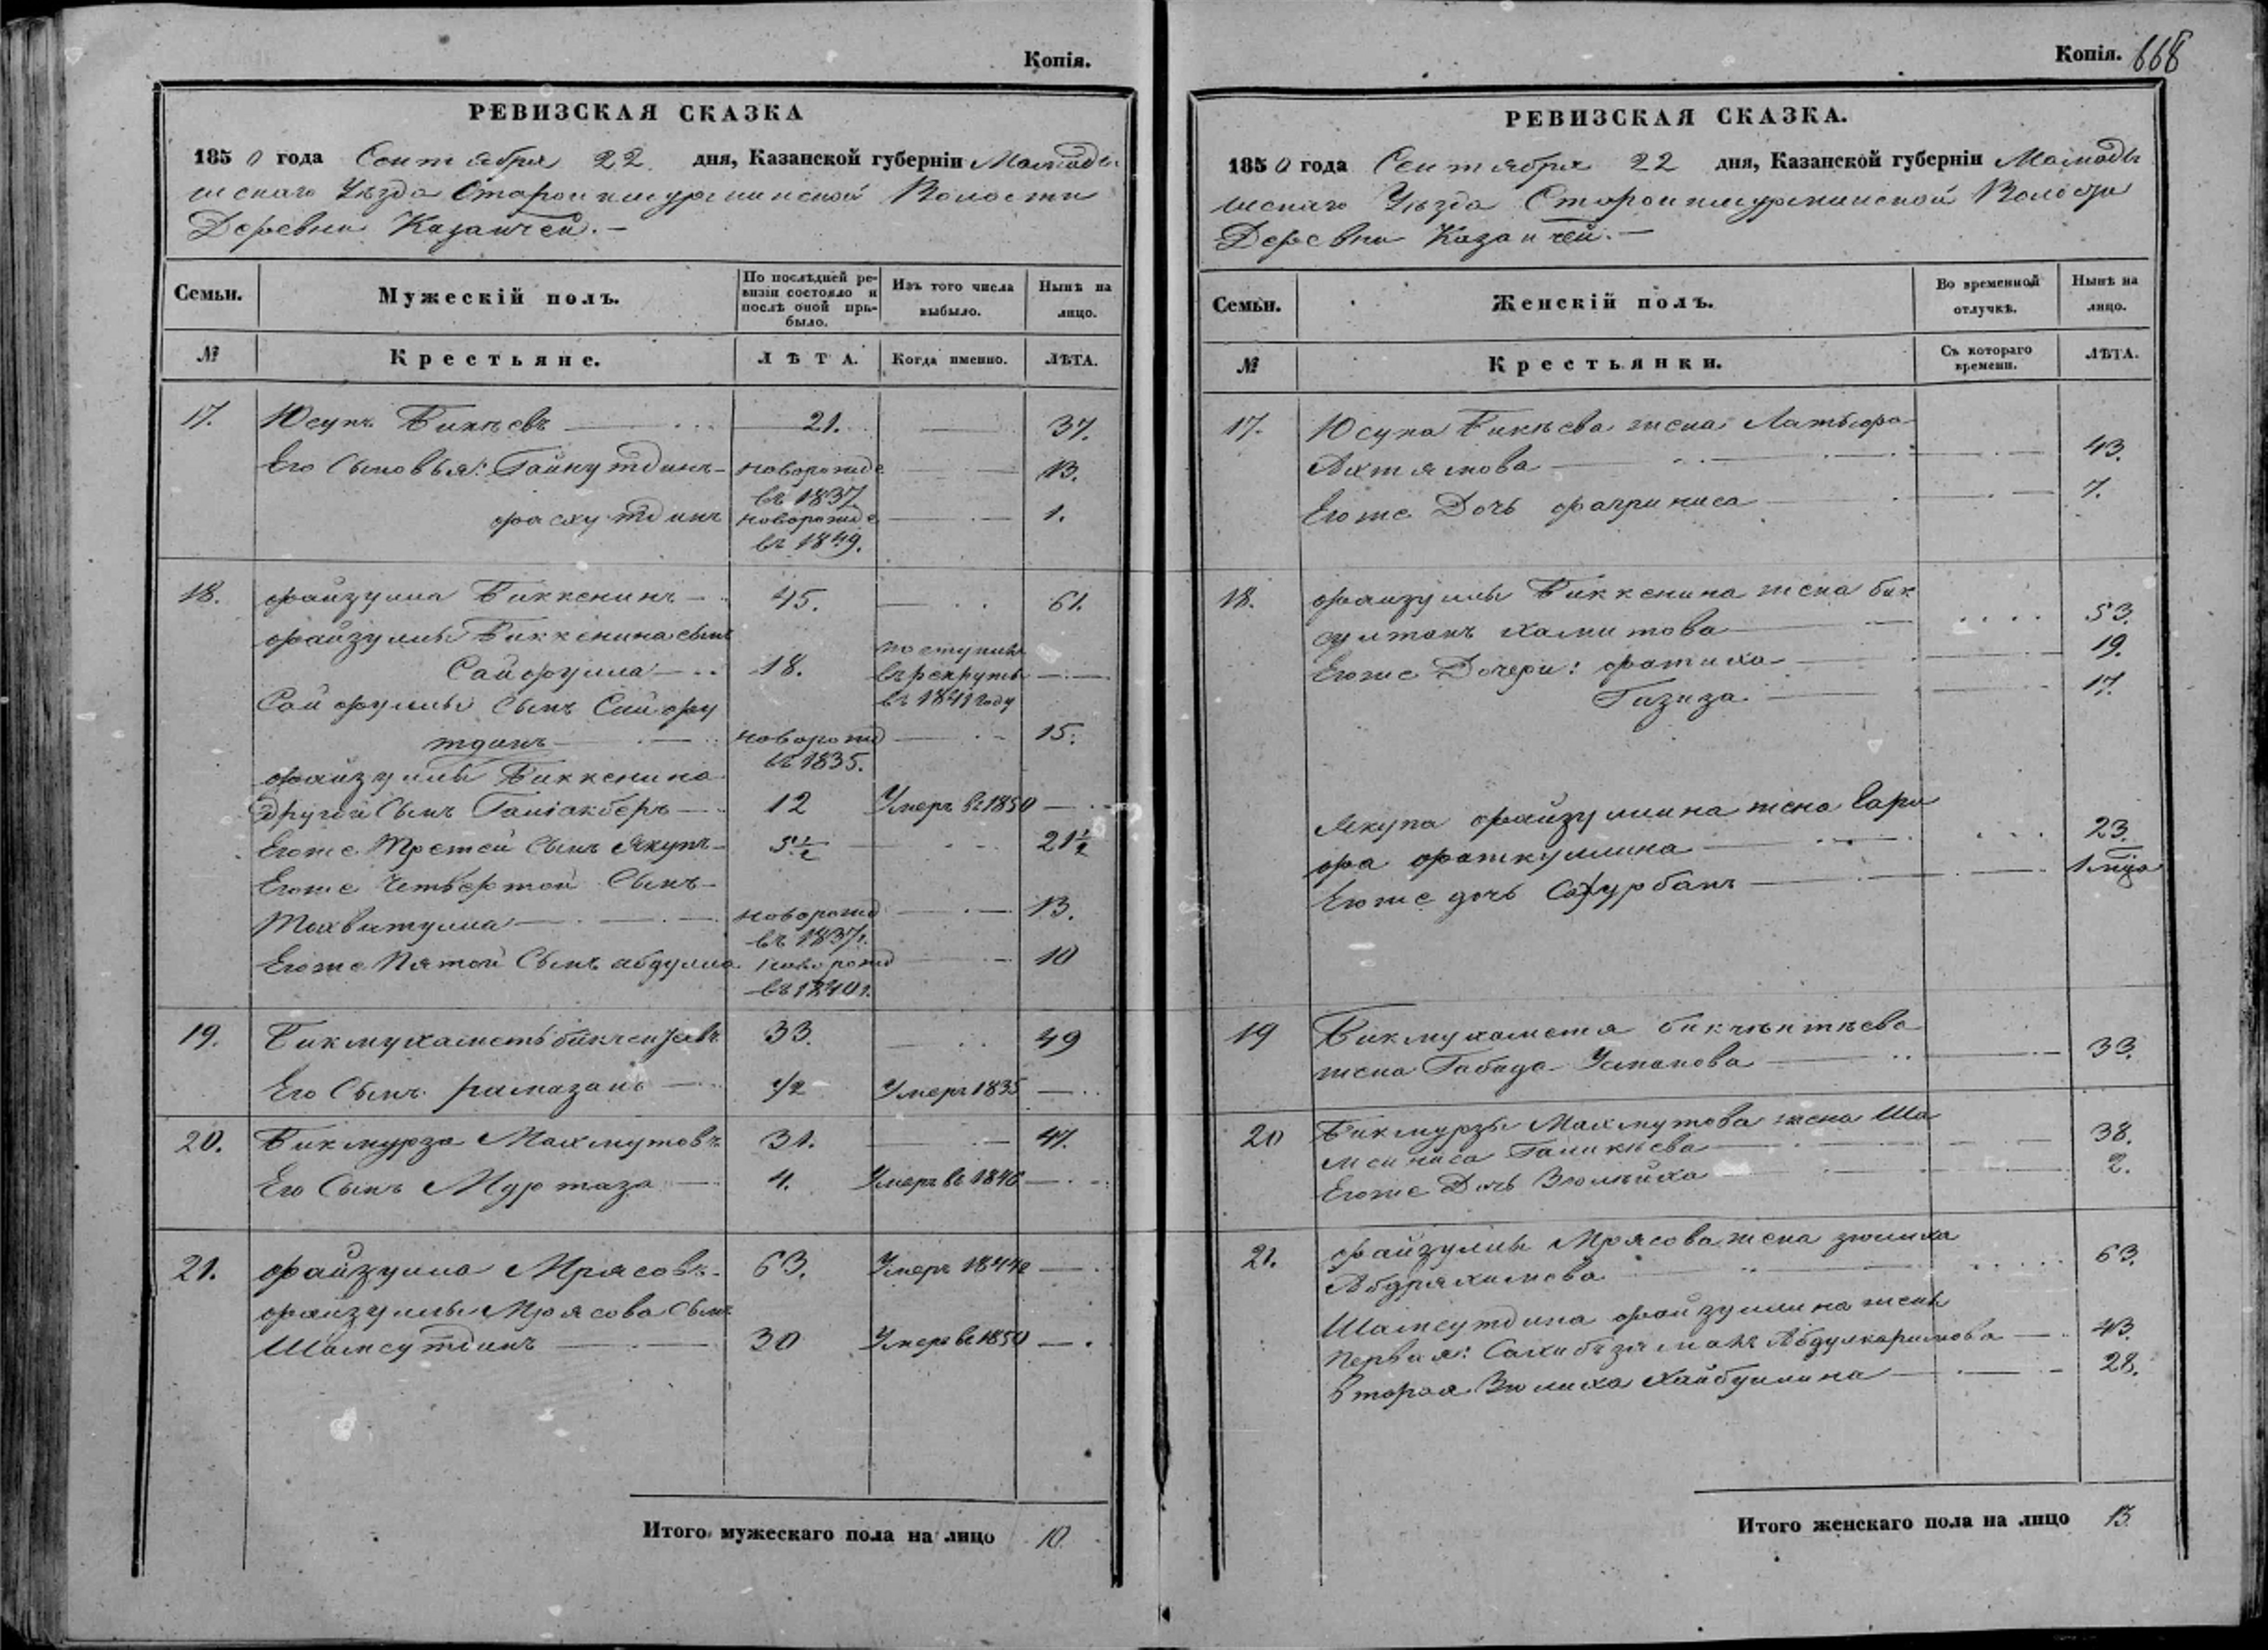 Копія.
РЕВИЗСКАЯ СКАЗКА
1850 года Сентября 22 дня, Казанской губерніи Мамады
шскаго Уѣзда Староклурминской Волости
Деревни Казанчей. —
Семьи.
Мужескій полъ.
По послѣдней ре-
визіи состояло и
послѣ оной при-
было.
Изъ того числа
выбыло.
Нынѣ на
лицо.
№
Крестьяне.
ЛѢТА.
Когда именно.
ЛѢТА.
17. Юсупъ Бикѣевъ 21. 37.
Его Сыновья: Гайнутдинъ новорожде 13.
въ 1837
Фасхутдинъ новорожде 1.
въ 1849.
18. Файзулла Биккенинъ 45. 61.
Файзуллы Биккенина сынъ
Сайфулла 18. поступилъ
въ рекруты
въ 1841 году
Сайфуллы Сынъ Сайфу
тдинъ новорожд 15.
въ 1835.
Файзуллы Биккенина
другой Сынъ Галіакберъ 12 Умеръ въ 1850
Егоже Третей Сынъ Якупъ 5 1/2 21 1/2
Егоже Четвертой Сынъ
Мохвитулла новорожд 13.
въ 1837.
Егоже Пятой Сынъ абдулла новорожд 10
въ 1840 г.
19. Бикмухаметь 33. 49
Его Сынъ рамазанъ 1/2 Умеръ 1835
20. Бикмурза Махмутовъ 31. 47.
Его Сынъ Муртаза 4. Умеръ въ 1840
21. Файзулла Мрясовъ 63. Умеръ 1844
Файзуллы Мрясова Сынъ
Шамсутдинъ 30 Умеръ въ 1850
Итого мужескаго пола на лицо 10.
Копія. 668
РЕВИЗСКАЯ СКАЗКА.
1850 года Сентября 22 дня, Казанской губерніи Мамады
шскаго Уѣзда Староклурминской Волости
Деревни Казанчей. —
Семьи.
Женскій полъ.
Во временной
отлучкѣ.
Нынѣ на
лицо.
№
Крестьянки.
Съ котораго
времени.
ЛѢТА.
17. Юсупа Бикѣева жена Латыфа
Ахтямова 43.
Егоже Дочь Фахриниса 7.
18. Файзуллы Биккенина жена бик
султанъ Хамитова 53.
Егоже Дочери: Фатиха 19.
Газиза 17.
Якупа Файзуллина жена Сари
фа Фаткуллина 23.
Егоже дочь 1 мца
19 Бикмухаметя бикчентѣева
жена Габида Усманова 33.
20 Бикмурзы Махмутова жена Ша
мсиниса Галикѣева 38.
Егоже Дочь Зюлѣйха 2.
21. Файзуллы Мрясова жена зюлиха
Абдряхимова 63.
Шамсутдина Файзуллина жены
Первая: Сахибзяманъ Абдулкаримова 43.
Вторая Зюлиха Хайбуллина 28.
Итого женскаго пола на лицо 13.